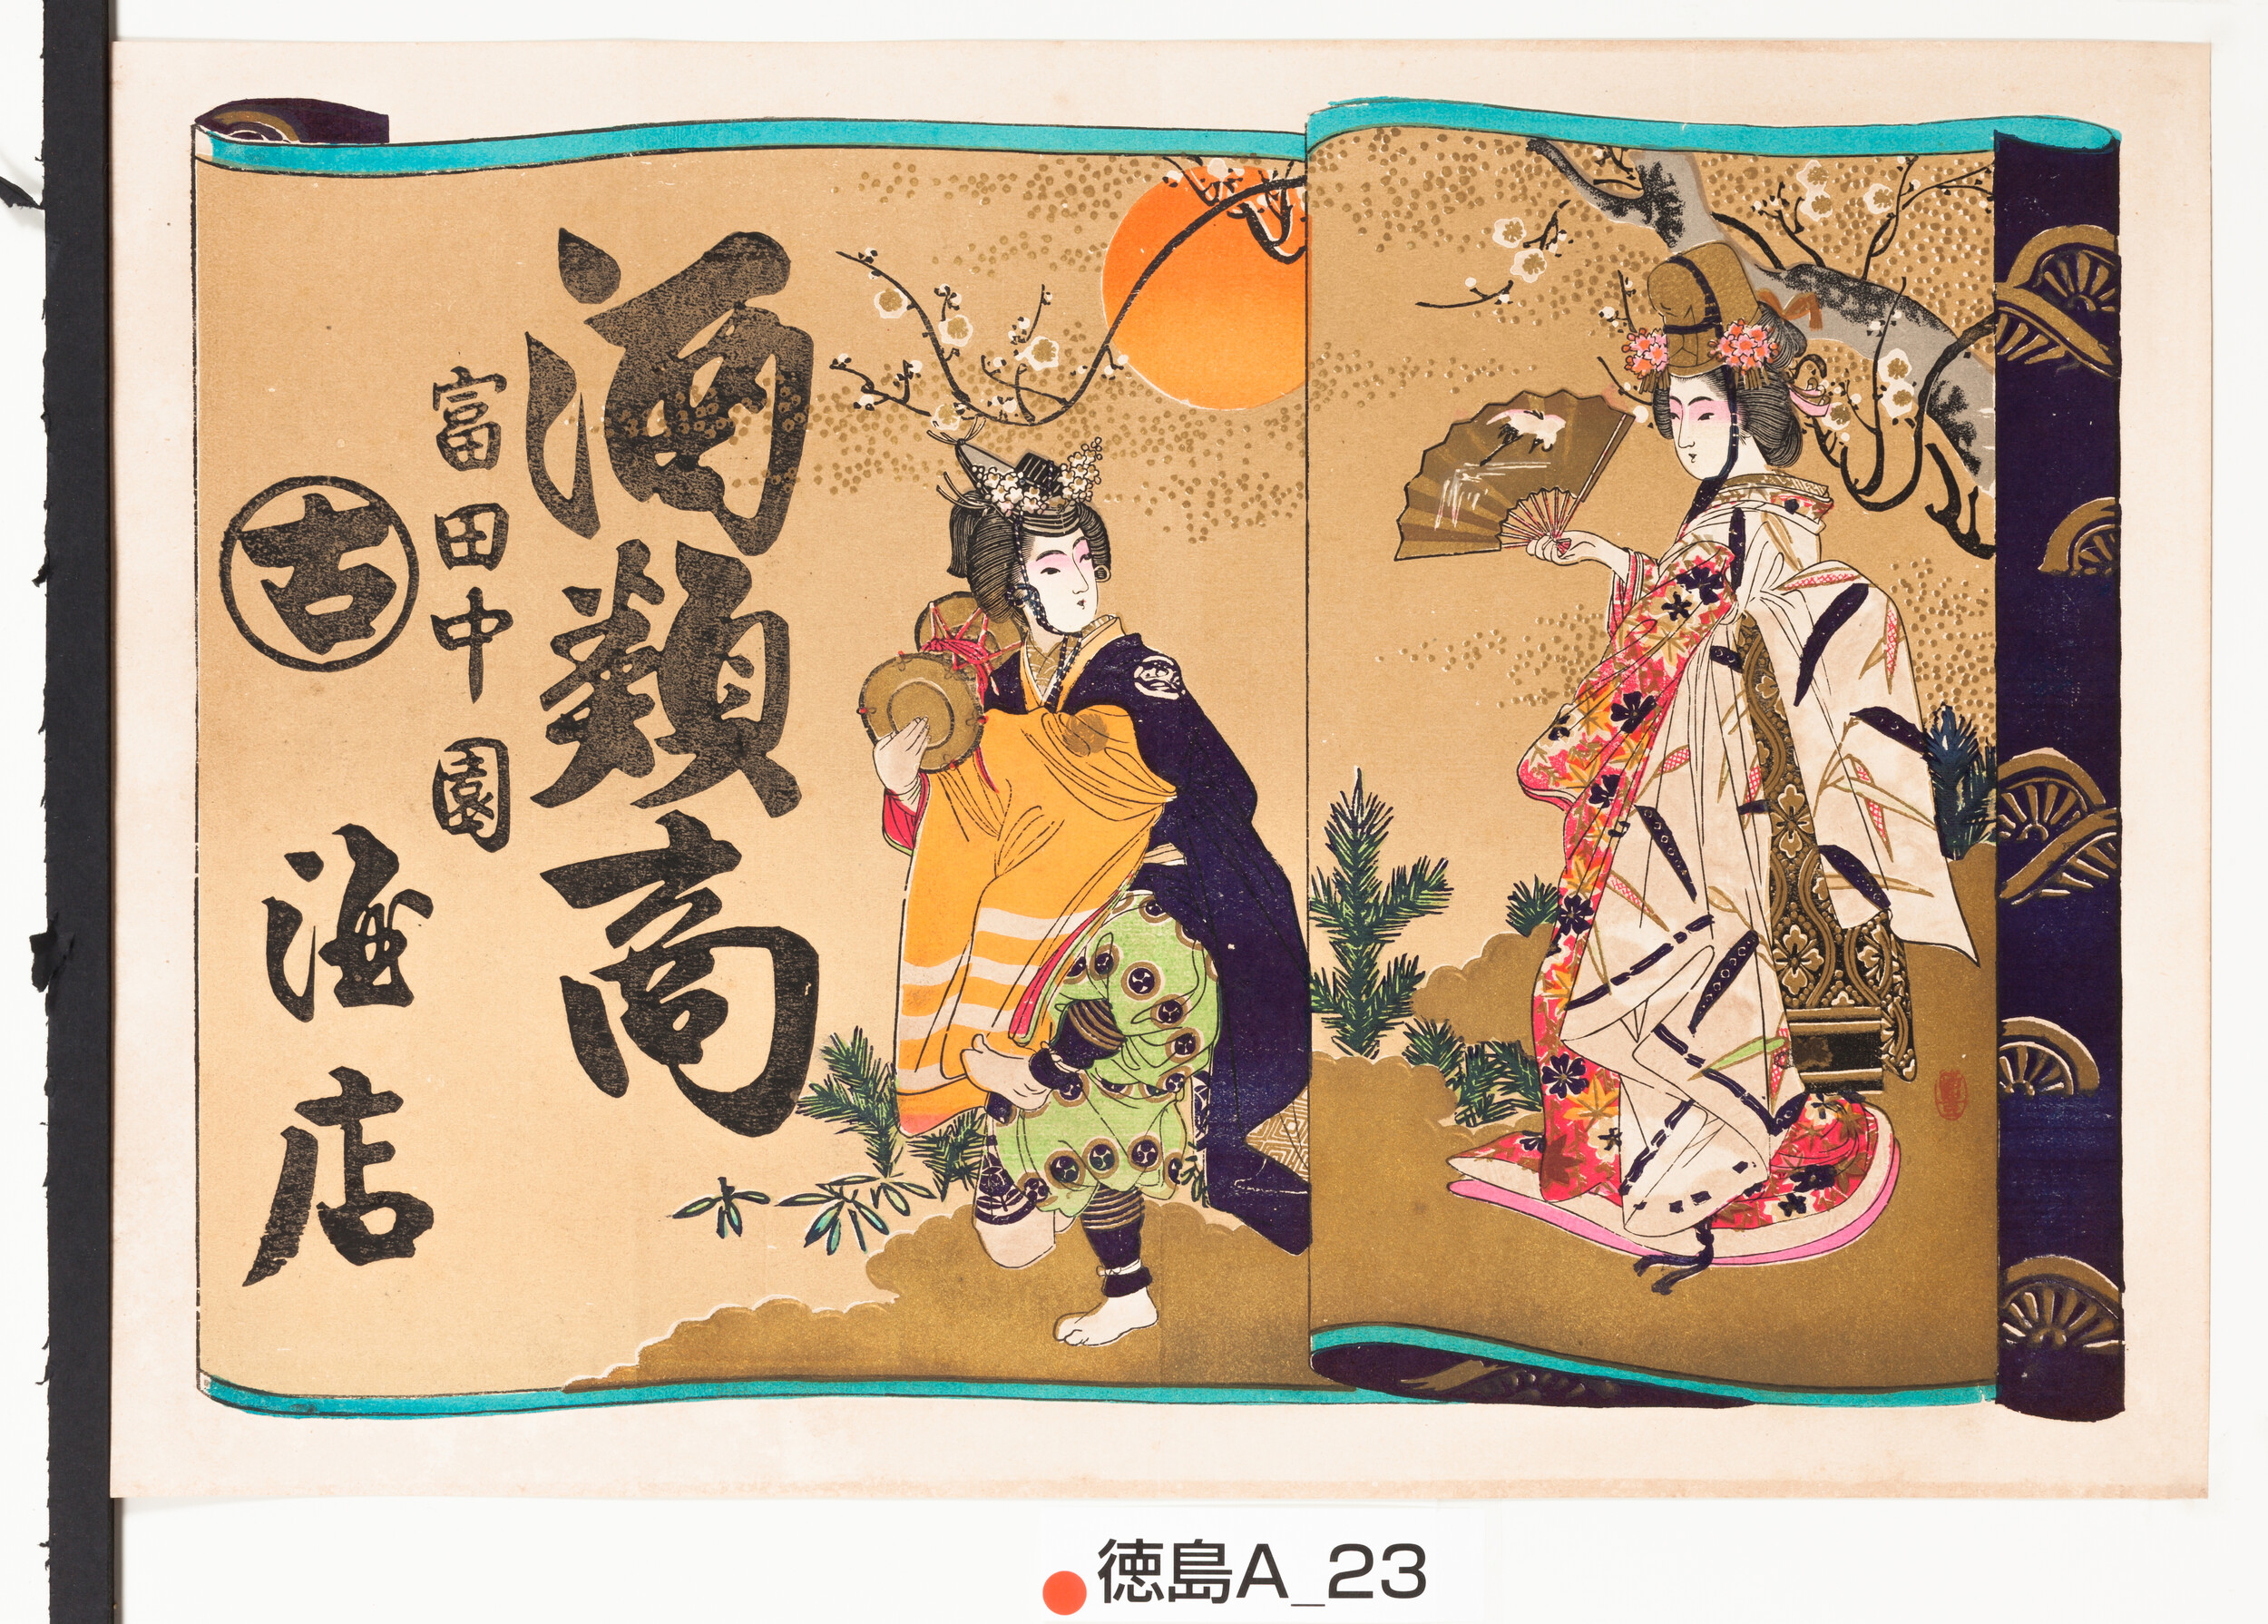 酒類商
富田中園
古
海店
徳島A_23